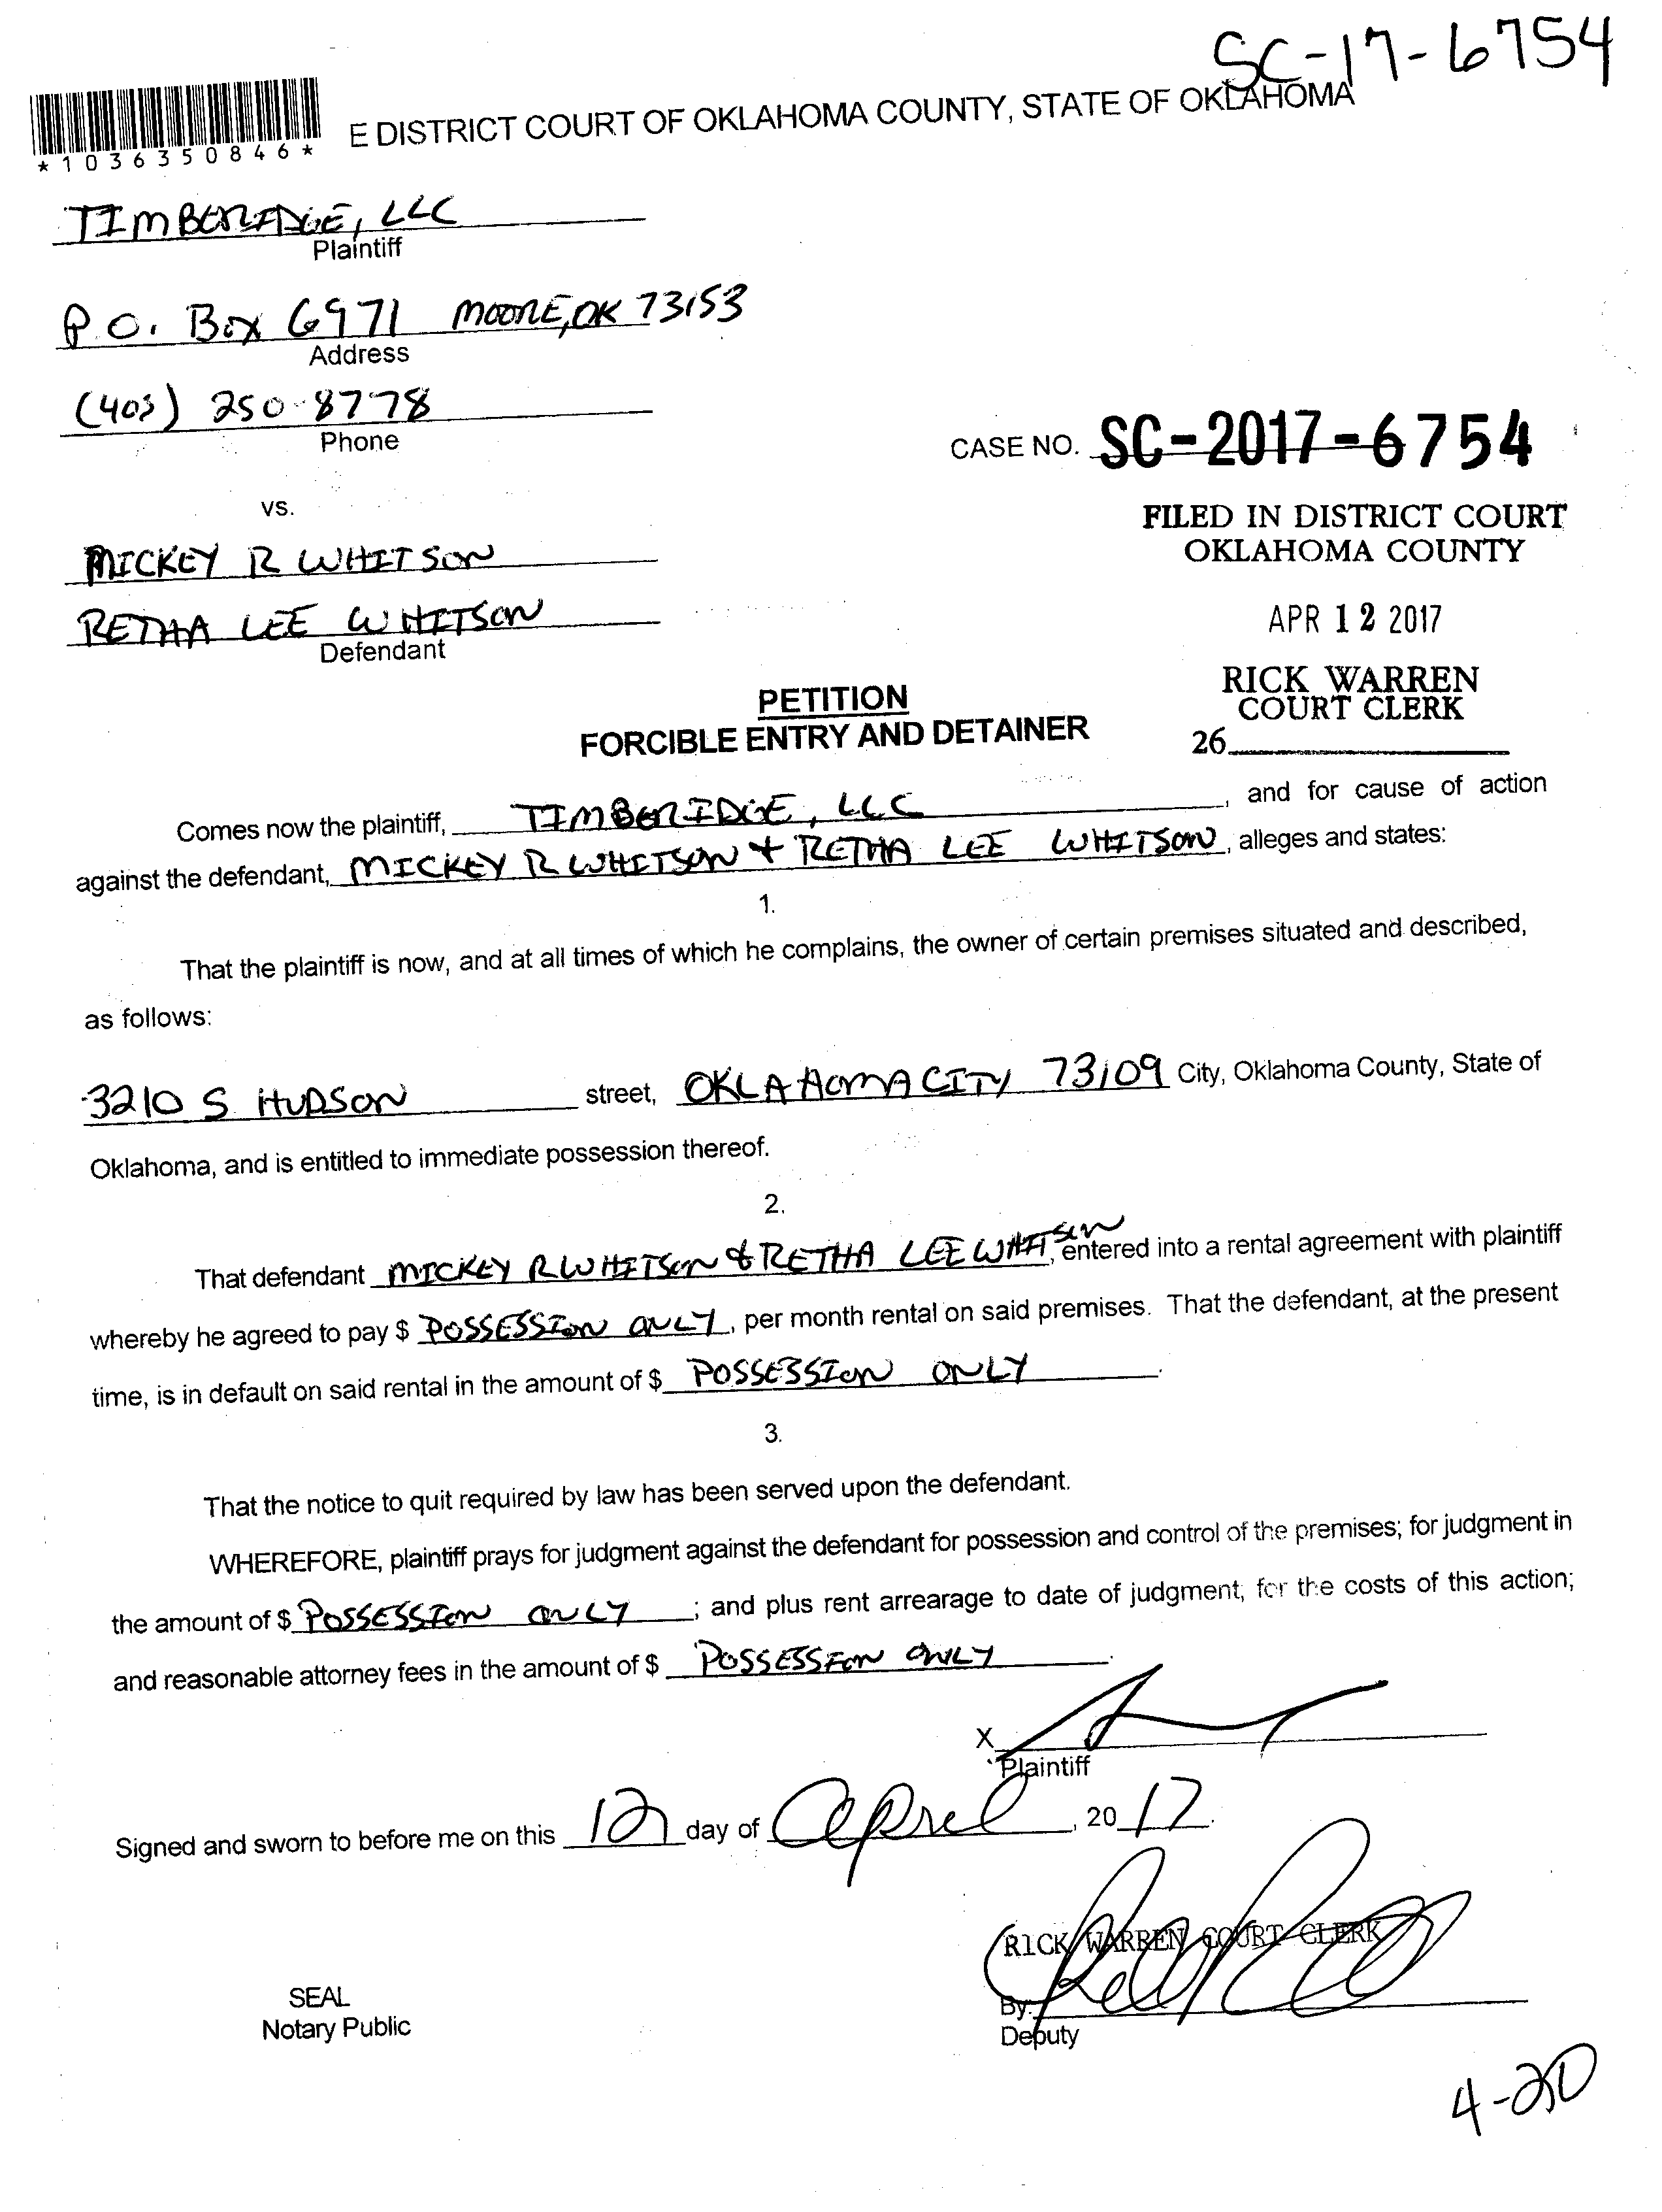 SC-17-6754
*1036350846*
E DISTRICT COURT OF OKLAHOMA COUNTY, STATE OF OKLAHOMA
TIMBERIDGE, LLC
Plaintiff
P.O. Box 6971 MOORE, OK 73153
Address
(405) 250-8778
Phone
CASE NO. SC-2017-6754
vs.
FILED IN DISTRICT COURT
OKLAHOMA COUNTY
MICKEY R WHITSON
RETHA LEE WHITSON
Defendant
APR 12 2017
RICK WARREN
COURT CLERK
26
PETITION
FORCIBLE ENTRY AND DETAINER
Comes now the plaintiff, TIMBERIDGE, LLC, and for cause of action
against the defendant, MICKEY R WHITSON + RETHA LEE WHITSON, alleges and states:
1.
That the plaintiff is now, and at all times of which he complains, the owner of certain premises situated and described,
as follows:
3210 S HUDSON street, OKLAHOMA CITY 73109 City, Oklahoma County, State of
Oklahoma, and is entitled to immediate possession thereof.
2.
That defendant MICKEY R WHITSON & RETHA LEE WHITSON, entered into a rental agreement with plaintiff
whereby he agreed to pay $ POSSESSION ONLY, per month rental on said premises. That the defendant, at the present
time, is in default on said rental in the amount of $ POSSESSION ONLY.
3.
That the notice to quit required by law has been served upon the defendant.
WHEREFORE, plaintiff prays for judgment against the defendant for possession and control of the premises; for judgment in
the amount of $ POSSESSION ONLY; and plus rent arrearage to date of judgment; for the costs of this action;
and reasonable attorney fees in the amount of $ POSSESSION ONLY.
X
Plaintiff
Signed and sworn to before me on this 12 day of April, 2017.
RICK WARREN COURT CLERK
SEAL
Notary Public
By:
Deputy
4-20